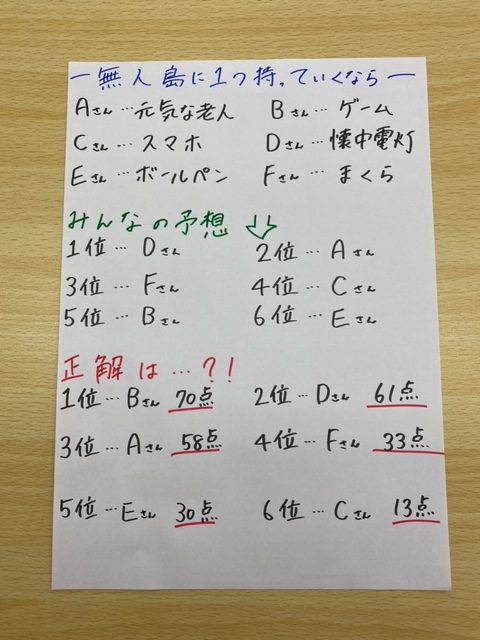 ー無人島に1つ持っていくならー
Aさん…元気な老人 Bさん…ゲーム
Cさん…スマホ Dさん…懐中電灯
Eさん…ボールペン Fさん…まくら
みんなの予想
1位…Dさん 2位…Aさん
3位…Fさん 4位…Cさん
5位…Bさん 6位…Eさん
正解は…?!
1位…Bさん 70点 2位…Dさん 61点
3位…Aさん 58点 4位…Fさん 33点
5位…Eさん 30点 6位…Cさん 13点